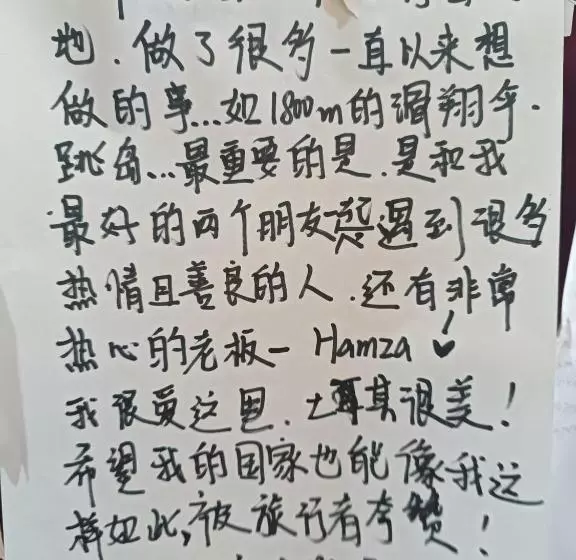 地.做了很多一直以来想
做的事...如1800m的滑翔伞.
跳岛...最重要的是.是和我
最好的两个朋友一起遇到很多
热情且善良的人.还有非常
热心的老板- Hamza!
我很爱这里.土耳其很美!
希望我的国家也能像我这
样如此,被旅行者夸赞!